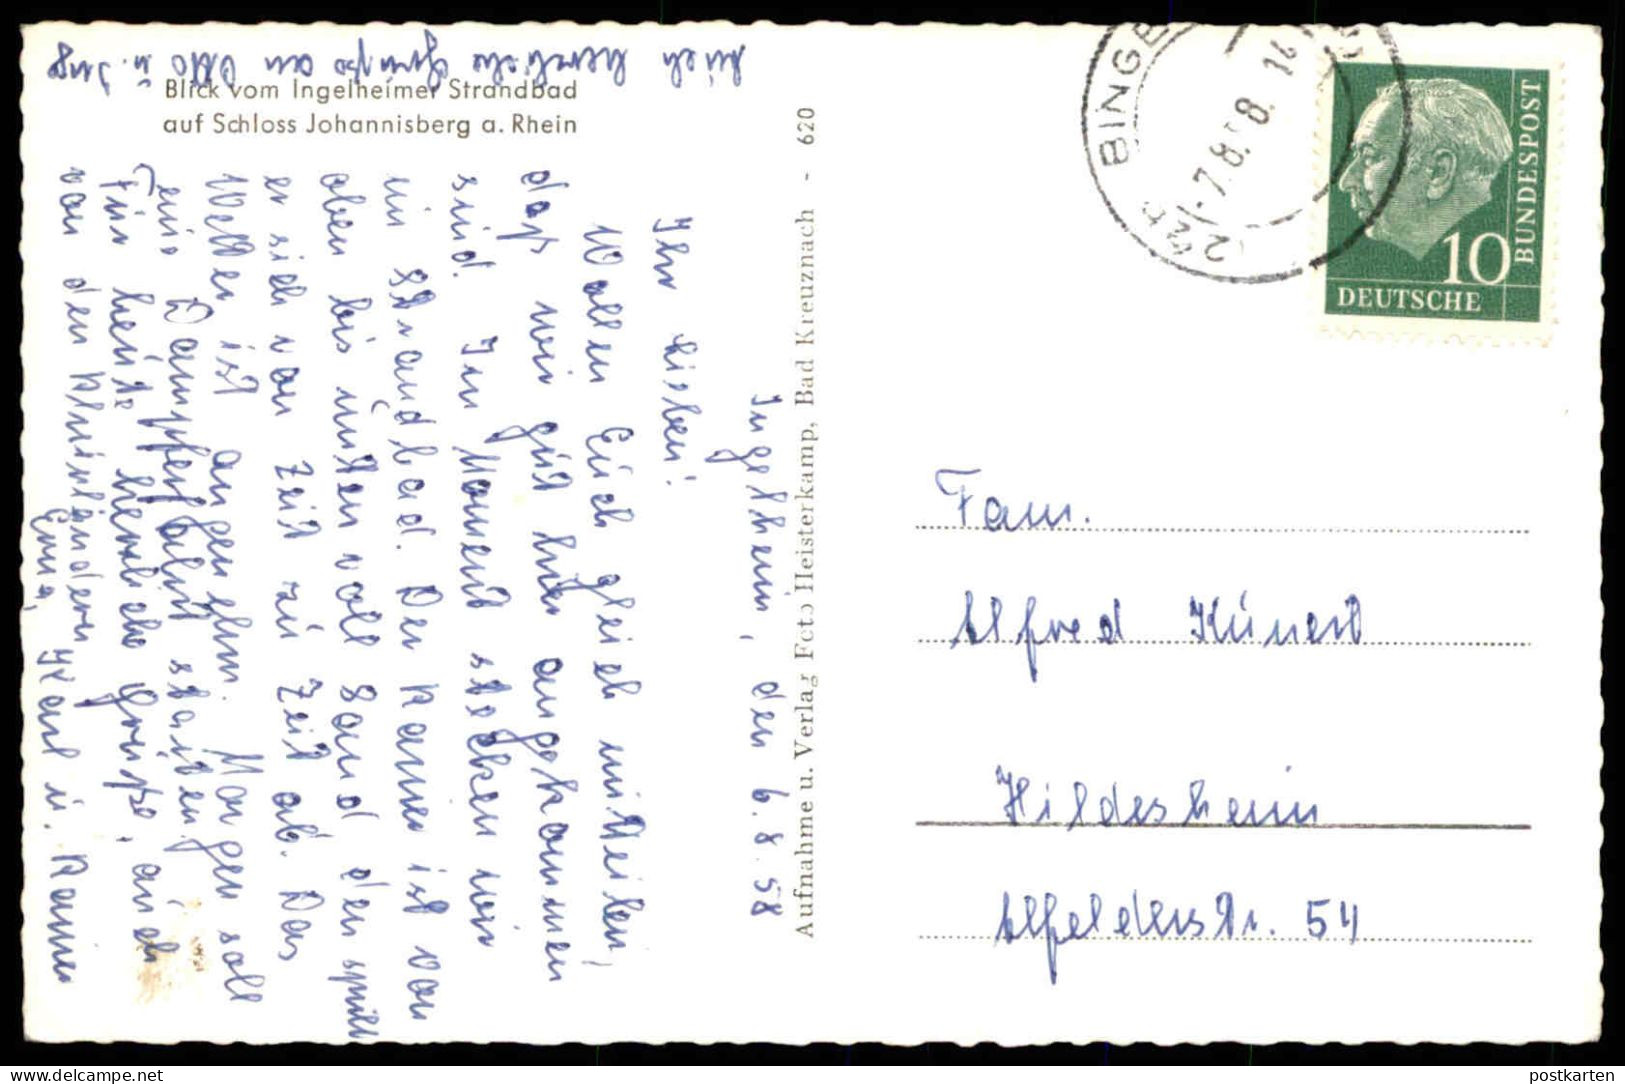 Auch herzliche Grüße an Otto u. Inge
Blick vom Ingelheimer Strandbad
auf Schloss Johannisberg a. Rhein
Ingelheim, den 6.8.58
Ihr Lieben!
Wollen Euch gleich mitteilen,
daß wir gut hier angekommen
sind. Im Moment stecken wir
im Strandbad. Der Rainer ist von
oben bis unten voll Sand den spült
er sich von Zeit zu Zeit ab. Das
Wetter ist angenehm. Morgen soll
eine Dampferfahrt starten.
Für heute herzliche Grüße, auch
von den Rheinländern
Erna, Karl u. Rainer
Aufnahme u. Verlag Foto Heisterkamp, Bad Kreuznach - 620
BINGE
-7.8.58. 16
BUNDESPOST
10
DEUTSCHE
Fam.
Alfred Kunert
Hildesheim
Alfelderstr. 54
postkarten